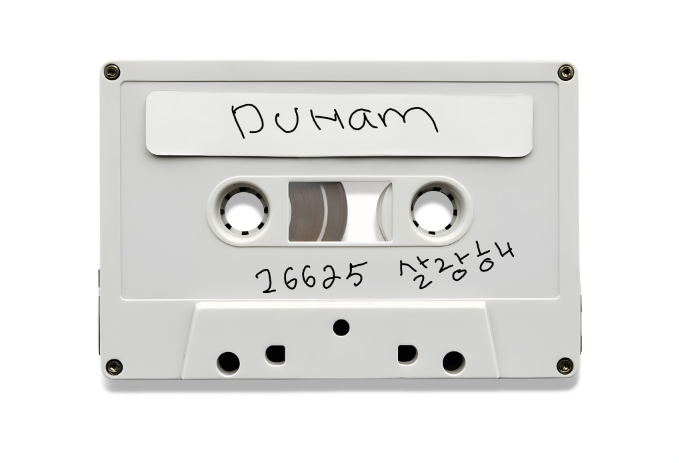 DUHam
26625 살랑해